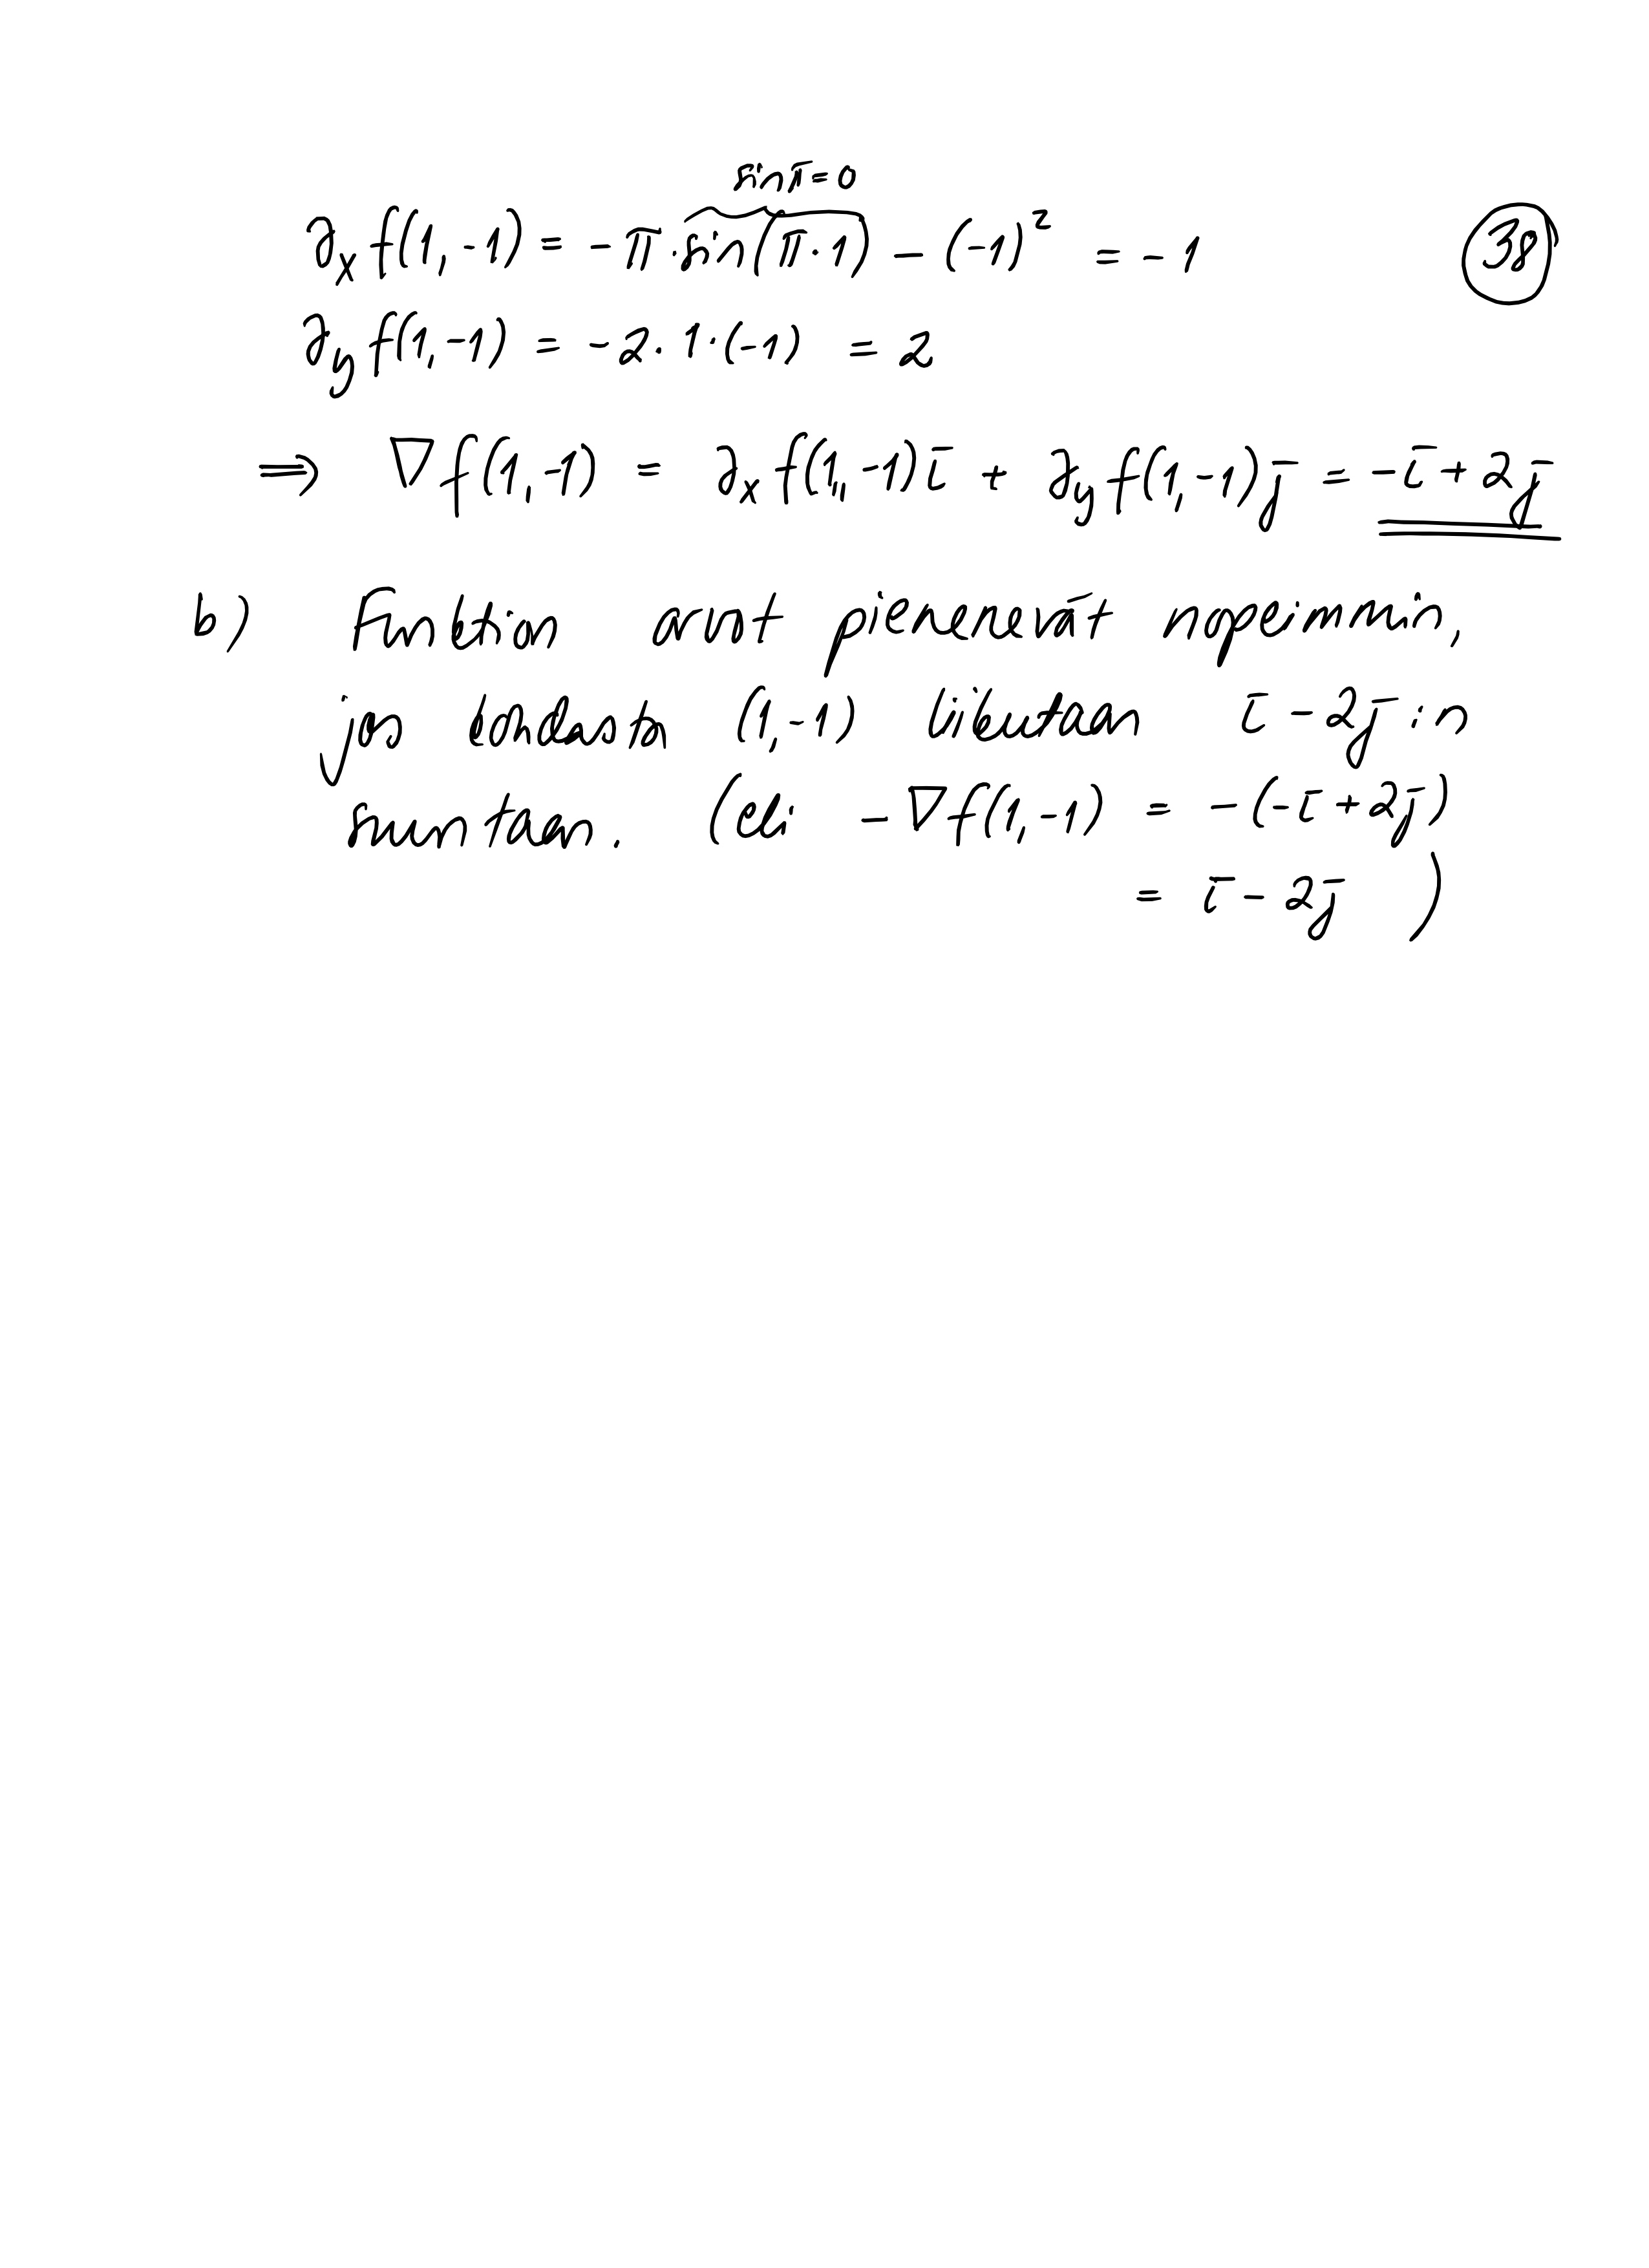 sin π = 0
∂ₓf(1,-1) = -π·sin(π·1) - (-1)² = -1
38
∂yf(1,-1) = -2·1·(-1) = 2
⟹ ∇f(1,-1) = ∂ₓf(1,-1)ī + ∂yf(1,-1)j̄ = -ī + 2j̄
b) Funktion arvot pienenevät nopeimmin,
jos kohdasta (1,-1) liikutaan ī - 2j̄ :n
suuntaan. (eli -∇f(1,-1) = -(-ī + 2j̄)
= ī - 2j̄ )